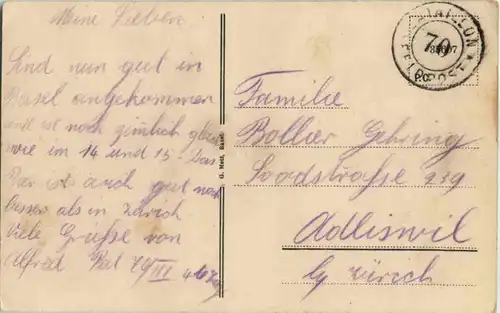 Meine Lieben
Sind nun gut in
Basel angekommen
und ist noch zimlich gleich
wie im 14 und 15. Das
ist auch gut
besser als in Zürich
Viele Grüsse von
Alfred Bat 79/III
G. Metz, Basel
BATAILLON
79
FELDPOST
Familie
Bollier Gehring
Soodstrasse 219
Adliswil
bg Zürich